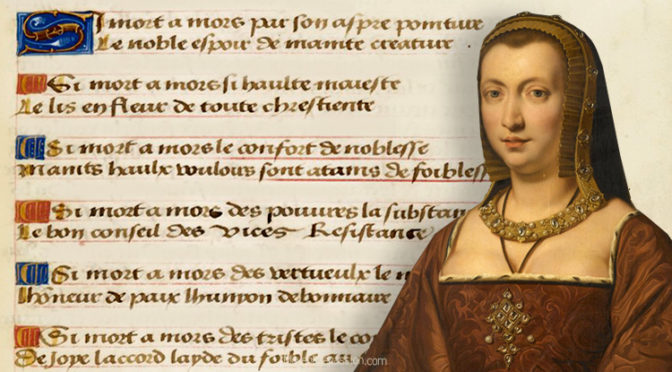 Si mort a mors par son aspre pointure
Le noble espoir de mainte creature
Si mort a mors si haulte maieste
Le lis en fleur de toute chrestiente
Si mort a mors le confort de noblesse
Maints haulx vouloirs sont atains de foibless
Si mort a mors des pouures la substan
Le bon conseil des vices Resistance
Si mort a mors des vertueulx le m
Lhoneur de paix lhumon debonnaire
Si mort a mors des tristes le con
De Joye laccord layde du foible au
.com